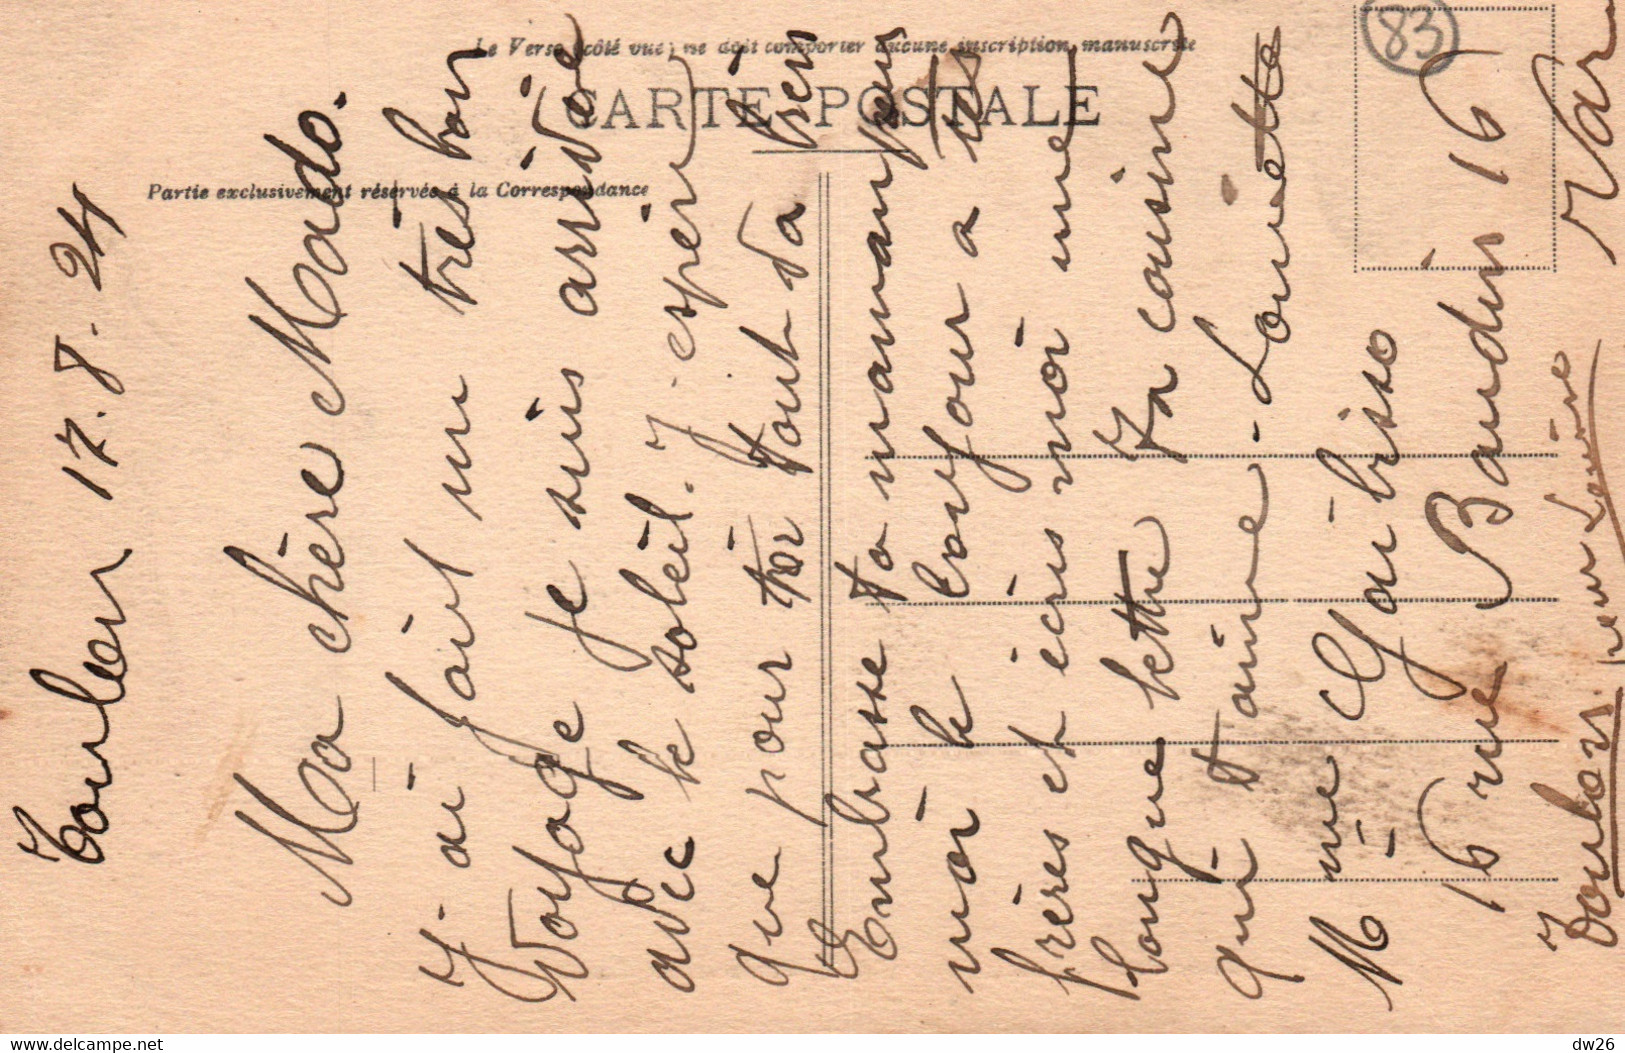 Le Verso (côté vue) ne doit comporter aucune inscription manuscrite
CARTE POSTALE
Partie exclusivement réservée à la Correspondance
83
Toulon 17.8.24
Ma chère Mado.
J'ai fait un très bon
voyage je suis arrivée
avec le soleil. J'espère
que pour toi tout va bien
Embrasse ta maman pour
moi le bonjour a tes
frères et écris moi une
longue lettre Ta cousine
qui t'aime - Louisette
Mme Garbisso
16 rue Baudin 16
Toulon Var
pour Louise
delcampe.net
dw26